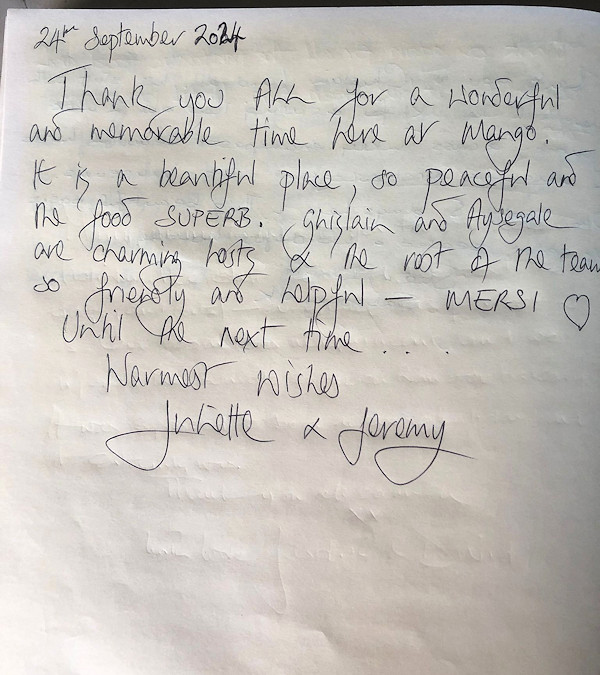 24th September 2024
Thank you ALL for a wonderful
and memorable time here at Mango.
It is a beautiful place, so peaceful and
the food SUPERB. Ghislain and Aysegale
are charming hosts & the rest of the team
so friendly and helpful — MERSI ♡
Until the next time ....
Warmest wishes
Juliette & Jeremy